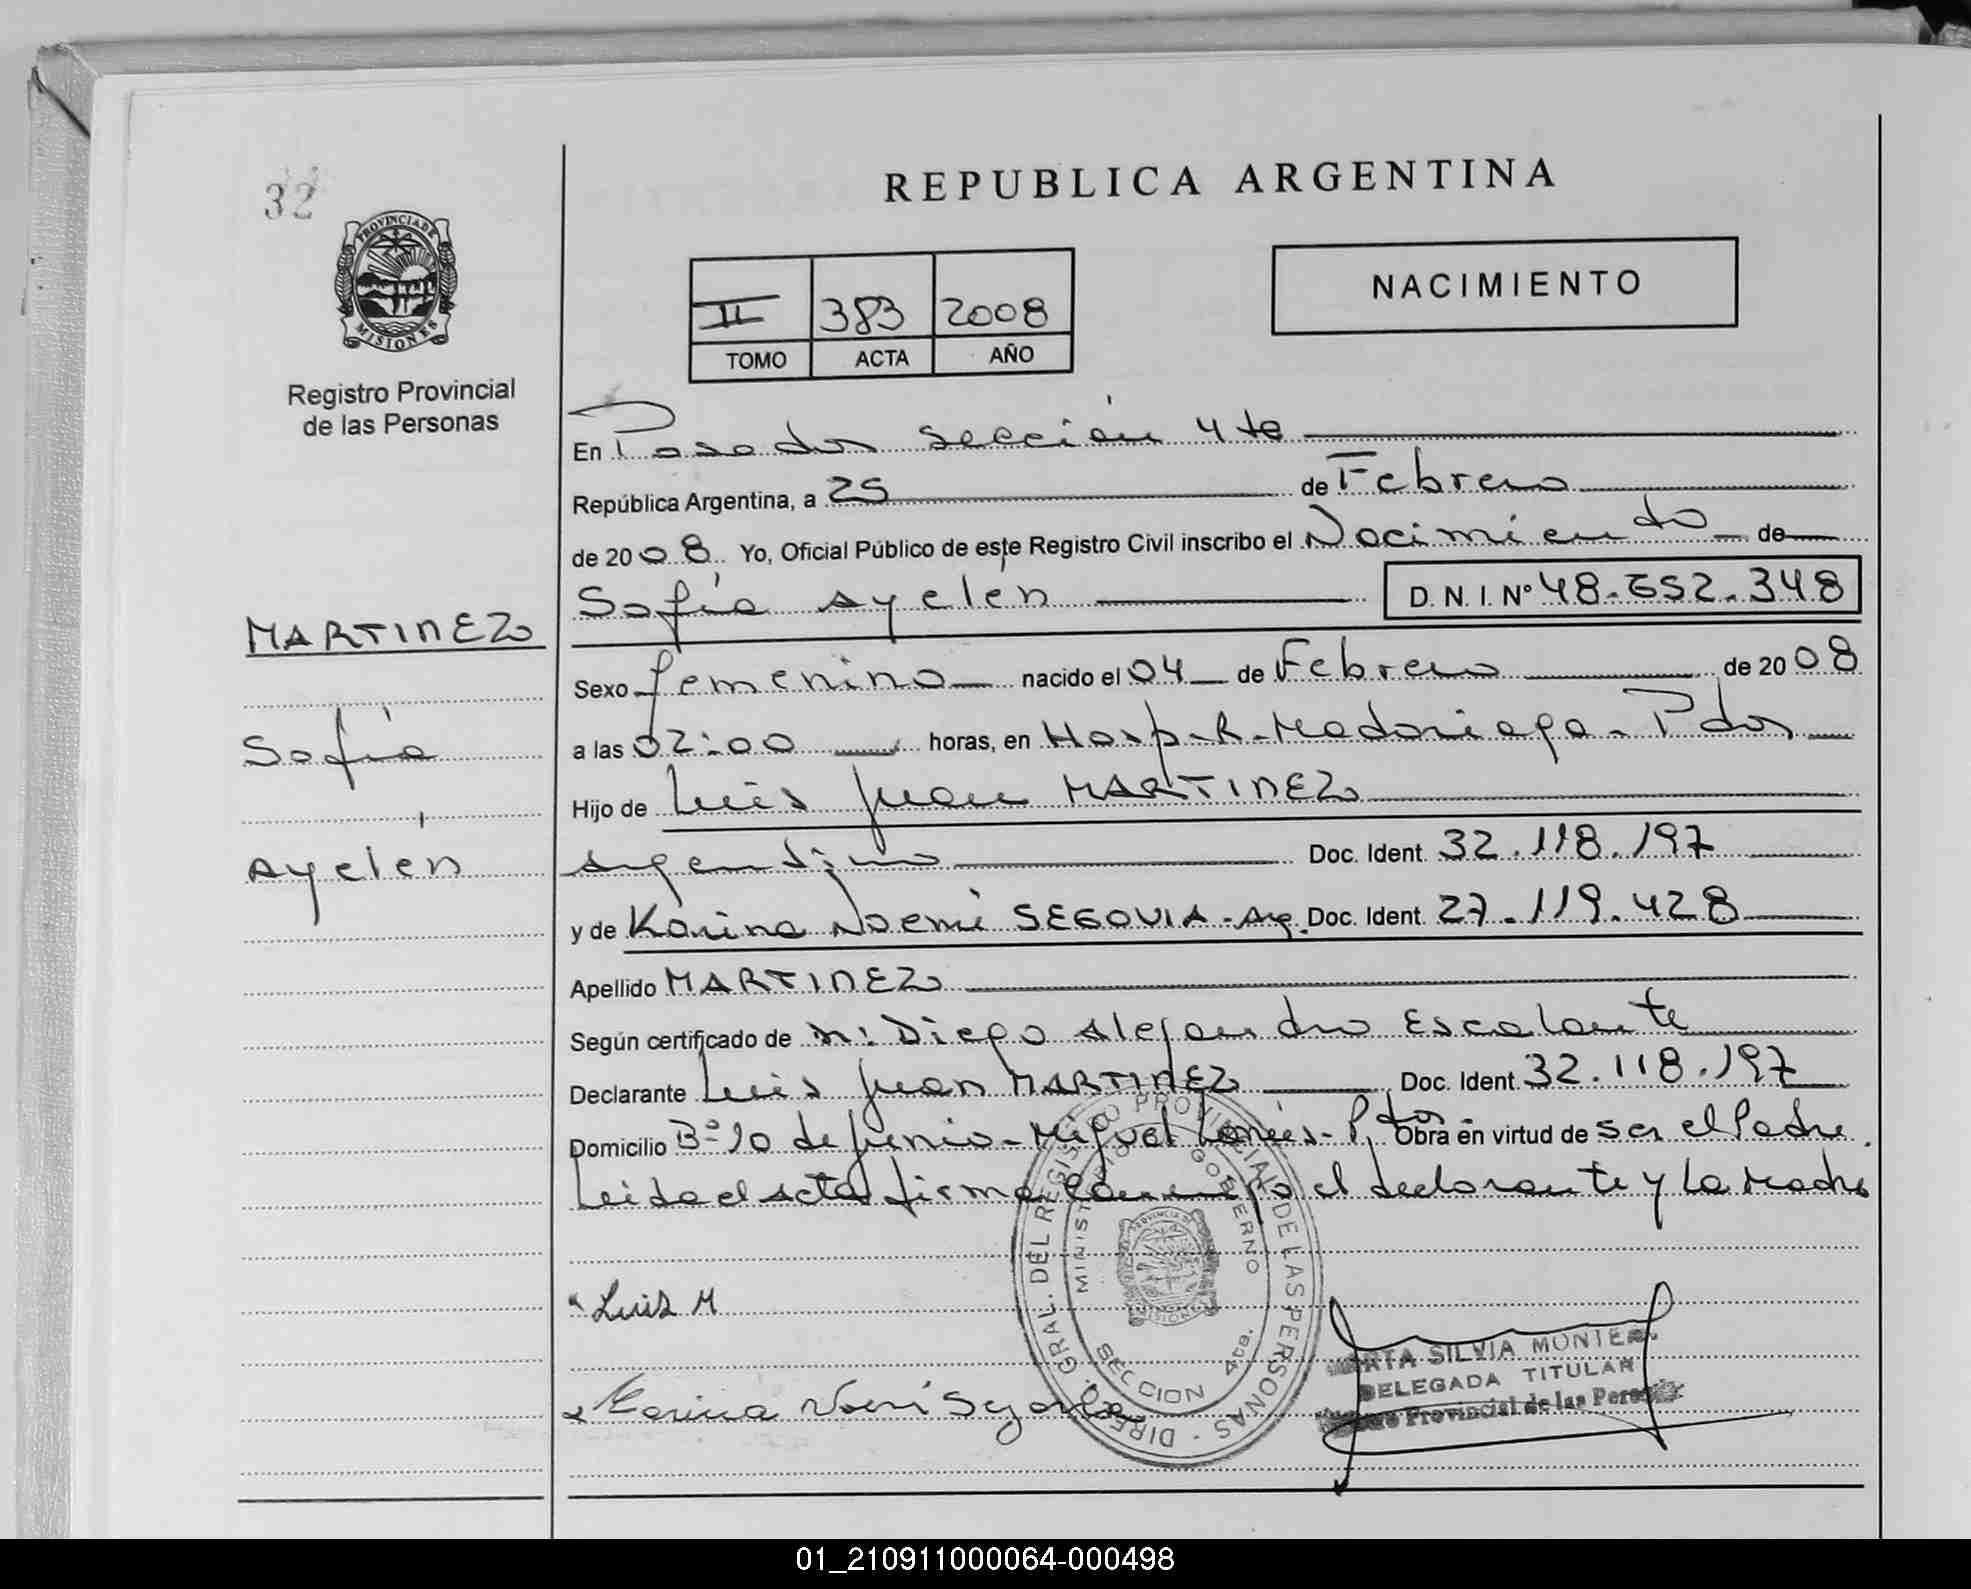 32
PROVINCIA DE
MISIONES
Registro Provincial
de las Personas
REPUBLICA ARGENTINA
NACIMIENTO
II 383 2008
TOMO ACTA AÑO
En Posadas sección 4ta
República Argentina, a 25 de Febrero
de 2008 Yo, Oficial Público de este Registro Civil inscribo el Nacimiento de
Sofía Ayelén D.N.I. Nº 48.552.348
MARTINEZ
Sofía
Ayelén
Sexo femenino nacido el 04 de Febrero de 2008
a las 02:00 horas, en Hosp. R. Madariaga - Pdas
Hijo de Luis Juan MARTINEZ
Argentino Doc. Ident. 32.118.197
y de Karina Noemí SEGOVIA - Arg. Doc. Ident. 27.119.428
Apellido MARTINEZ
Según certificado de Diego Alejandro Escalante
Declarante Luis Juan MARTINEZ Doc. Ident. 32.118.197
Domicilio Bº 20 de Junio - Miguel Lanús - Pdas Obra en virtud de ser el Padre.
Leida el acta firma conmigo el declarante y La Madre
Luis M
Karina Noemí Segovia
DIREC. GRAL. DEL REGISTRO PROVINCIAL DE LAS PERSONAS
MINISTERIO GOBIERNO
PROVINCIA DE
MISIONES
SECCION 4ta.
SILVIA
DELEGADA TITULAR
Provincial de las
01_210911000064-000498